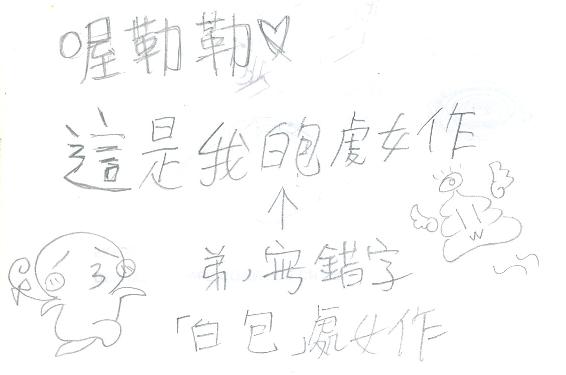 喔勒勒♡
這是我白包處女作
↑
弟,無錯字
「白包」處女作